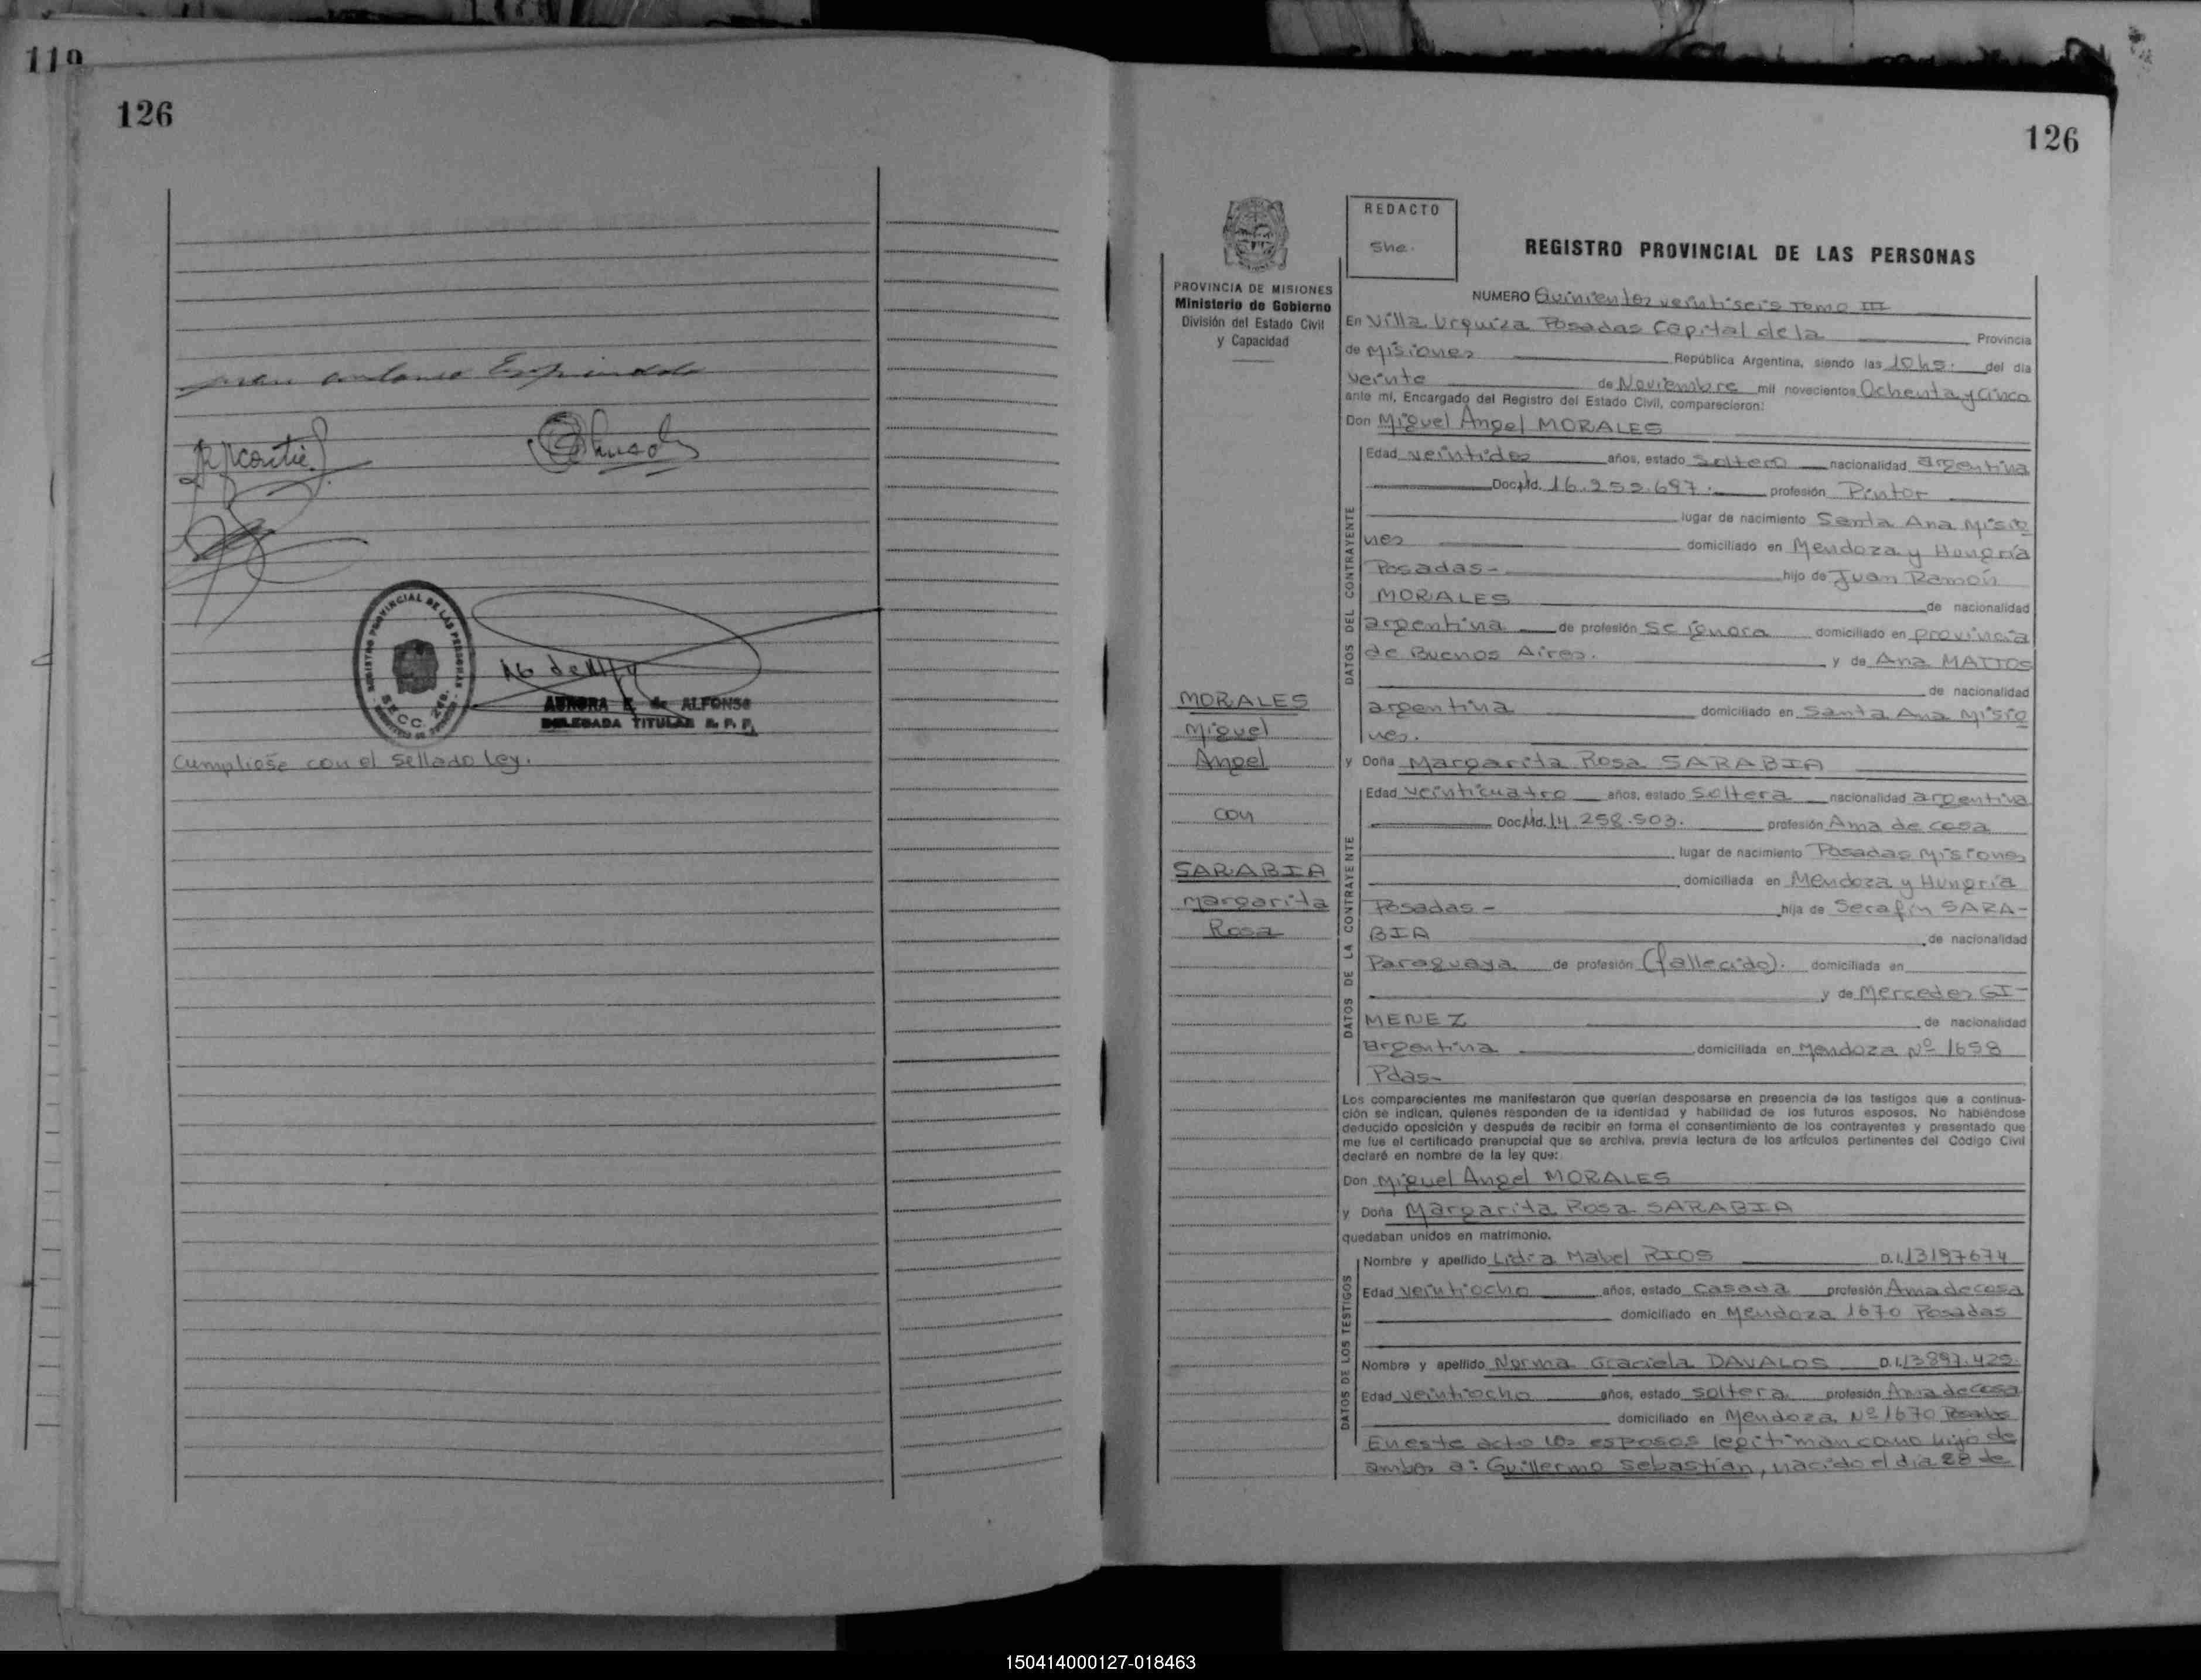 119
126
Juan Antonio Espindola
16 de
AURORA E. de ALFONSO
DELEGADA TITULAR R. P. P.
REGISTRO PROVINCIAL DE LAS PERSONAS
SECC. 2da.
Cumpliose con el sellado ley.
126
PROVINCIA DE MISIONES
Ministerio de Gobierno
División del Estado Civil
y Capacidad
REDACTO
She.
REGISTRO PROVINCIAL DE LAS PERSONAS
NUMERO Quinientos veintiseis Tomo III
En Villa Urquiza Posadas Capital de la Provincia
de Misiones República Argentina, siendo las 10 hs. del día
veinte de Noviembre mil novecientos Ochenta y cinco
ante mí, Encargado del Registro del Estado Civil, comparecieron:
Don Miguel Angel MORALES
DATOS DEL CONTRAYENTE
Edad veintidos años, estado Soltero nacionalidad argentina
Doc. Id. 16.252.697. profesión Pintor
lugar de nacimiento Santa Ana Misio
nes domiciliado en Mendoza y Hungria
Posadas- hijo de Juan Ramón
MORALES de nacionalidad
argentina de profesión se ignora domiciliado en provincia
de Buenos Aires. y de Ana MATTOS
de nacionalidad
argentina domiciliado en Santa Ana Misio
nes.
MORALES
Miguel
Angel
con
SARABIA
Margarita
Rosa
y Doña Margarita Rosa SARABIA
DATOS DE LA CONTRAYENTE
Edad veinticuatro años, estado Soltera nacionalidad argentina
Doc. Id. 14.258.503. profesión Ama de casa
lugar de nacimiento Posadas Misiones
domiciliada en Mendoza y Hungria
Posadas- hija de Serafin SARA-
BIA de nacionalidad
Paraguaya de profesión (fallecido). domiciliada en
y de Mercedes GI-
MENEZ de nacionalidad
argentina domiciliada en Mendoza Nº 1658
Pdas-
Los comparecientes me manifestaron que querían desposarse en presencia de los testigos que a continua-
ción se indican, quienes responden de la identidad y habilidad de los futuros esposos. No habiéndose
deducido oposición y después de recibir en forma el consentimiento de los contrayentes y presentado que
me fue el certificado prenupcial que se archiva, previa lectura de los artículos pertinentes del Código Civil
declaré en nombre de la ley que:
Don Miguel Angel MORALES
y Doña Margarita Rosa SARABIA
quedaban unidos en matrimonio.
DATOS DE LOS TESTIGOS
Nombre y apellido Lidia Mabel RIOS D.I. 13197674
Edad veintiocho años, estado casada profesión Ama de casa
domiciliado en Mendoza 1670 Posadas
Nombre y apellido Norma Graciela DAVALOS D.I. 13897.425.
Edad veintiocho años, estado soltera profesión Ama de casa
domiciliado en Mendoza Nº 1670 Posadas
En este acto los esposos legitiman como hijo de
ambos a: Guillermo Sebastián, nacido el dia 28 de
150414000127-018463